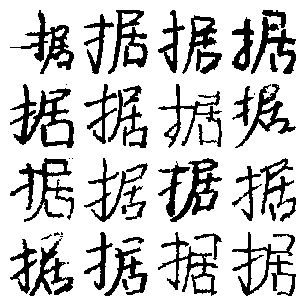 据据据据
据据据据
据据据据
据据据据